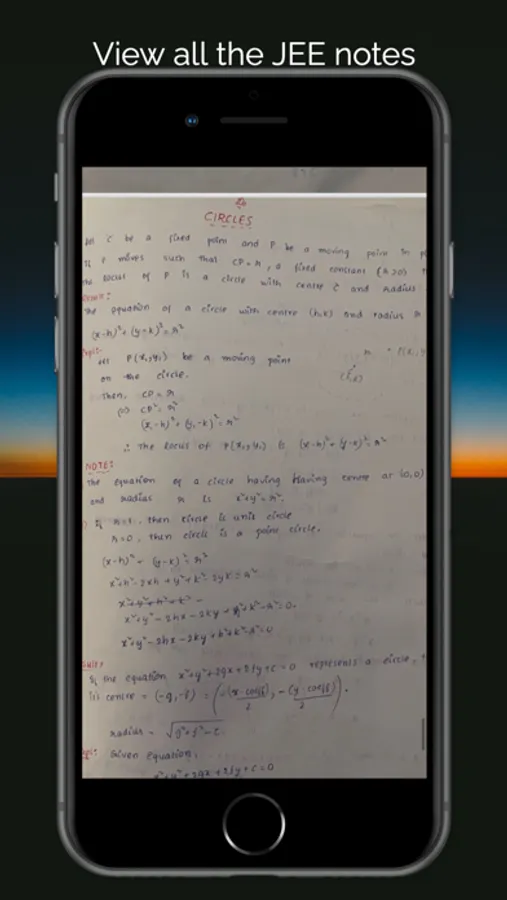 View all the JEE notes
CIRCLES
Let C be a fixed point and P be a moving point in
If P moves such that CP = r, a fixed constant (r>0)
the locus of P is a circle with centre C and radius
The equation of a circle with centre (h,k) and radius r
(x-h)²+(y-k)²=r²
Let P(x₁,y₁) be a moving point
on the circle.
Then, CP = r
CP² = r²
(x₁-h)²+(y₁-k)²=r²
∴ The locus of P(x₁,y₁) is (x-h)²+(y-k)²=r²
NOTE:
The equation of a circle having having centre at (0,0)
and radius r is x²+y²=r².
If r=1, then circle is unit circle
r=0, then circle is a point circle.
(x-h)²+(y-k)²=r²
x²+h²-2xh+y²+k²-2yk=r²
x²+y²+h²+k²-
x²+y²-2hx-2ky+h²+k²-r²=0.
x²+y²-2hx-2ky+h²+k²-r²=0
If the equation x²+y²+2gx+2fy+c=0 represents a circle,
centre = (-g,-f) = (-(x·coeff)/2, -(y·coeff)/2).
radius = √g²+f²-c
Given equation,
x²+y²+2gx+2fy+c=0